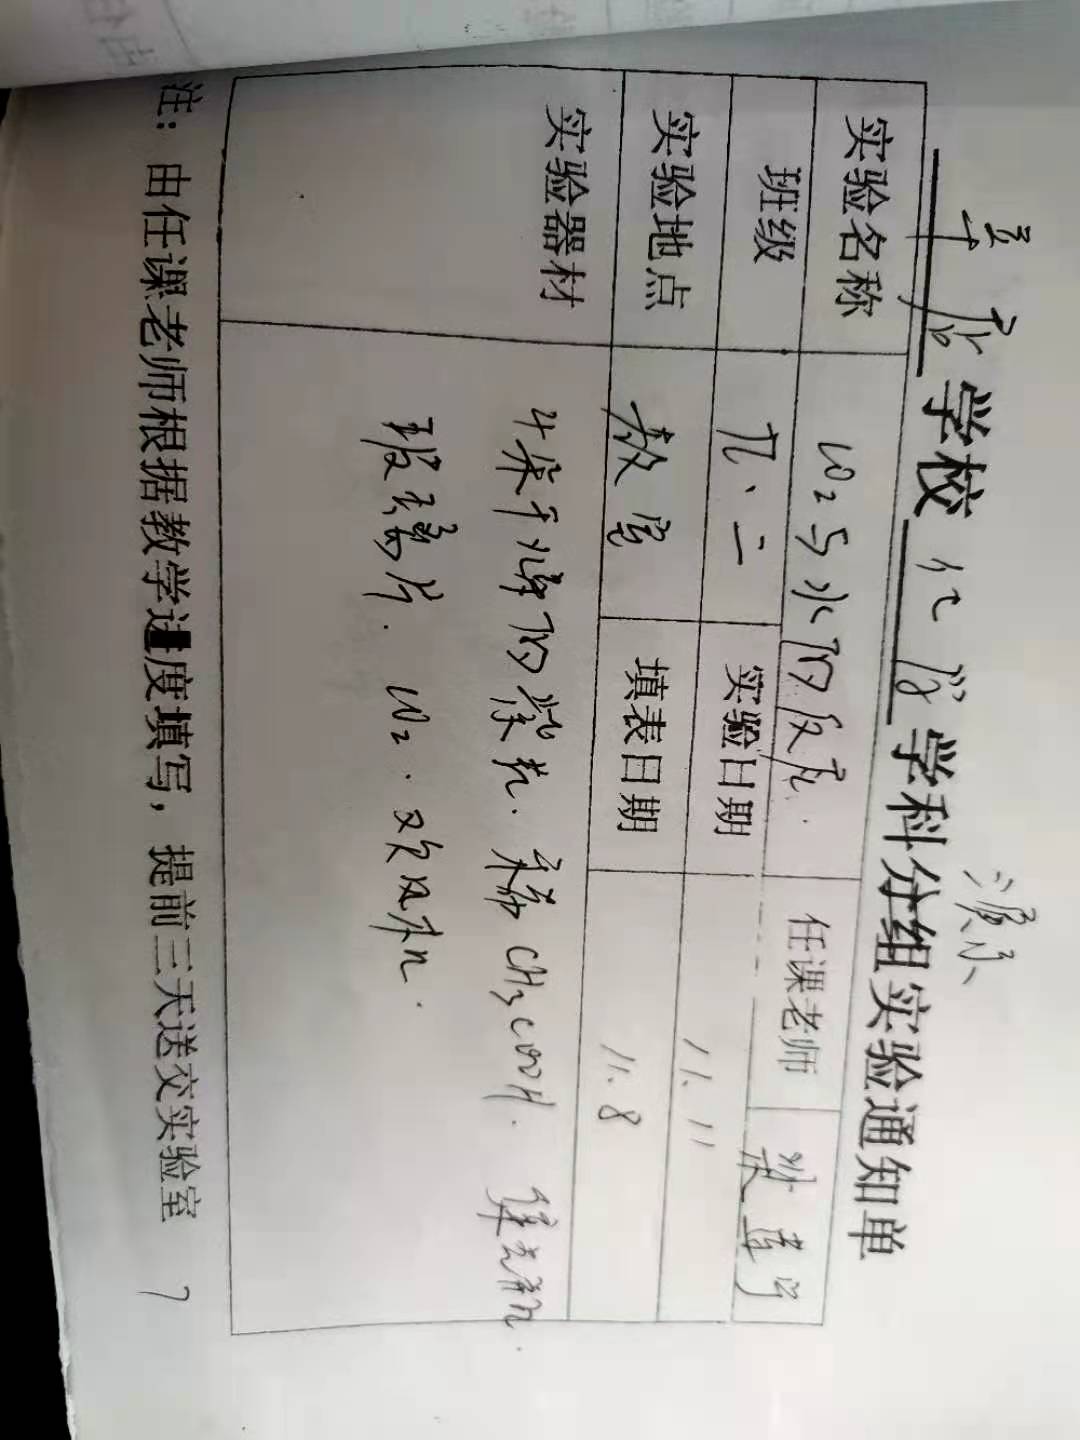 演示
学校 化学 学科分组实验通知单
实验名称 CO₂与水的反应. 任课老师
班级 九、二 实验日期 11.11
实验地点 教室 填表日期 11.8
实验器材 4朵干燥的紫花. 稀CH₃COOH. 集气瓶.
玻璃片. CO₂.
注：由任课老师根据教学进度填写，提前三天送交实验室 7